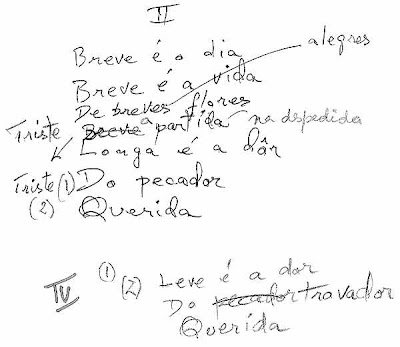 II
alegres
Breve é o dia
Breve é a vida
De breves flores
Triste Breve a partida na despedida
Longa é a dôr
Triste (1) Do pecador
(2) Querida
IV (1) (2) Leve é a dor
Do pecador travador
Querida